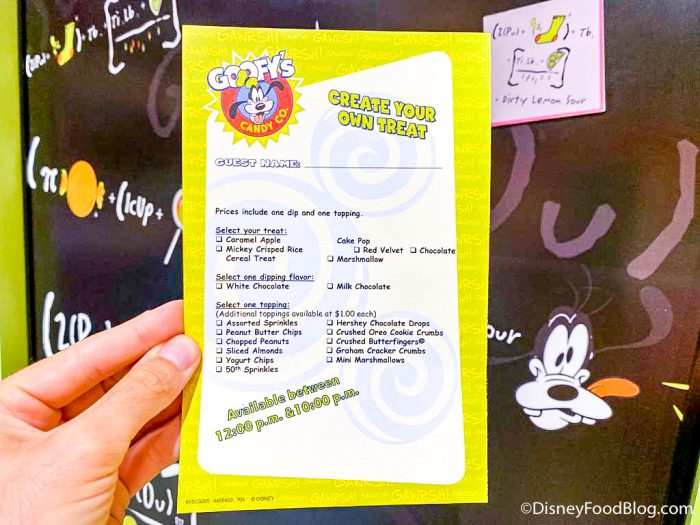 GOOFY'S
CANDY CO.
CREATE YOUR
OWN TREAT
GUEST NAME:
Prices include one dip and one topping.
Select your treat:
Caramel Apple
Cake Pop
Mickey Crisped Rice
Cereal Treat
Red Velvet
Chocolate
Marshmallow
Select one dipping flavor:
White Chocolate
Milk Chocolate
Select one topping:
(Additional toppings available at $1.00 each)
Assorted Sprinkles
Hershey Chocolate Drops
Peanut Butter Chips
Crushed Oreo Cookie Crumbs
Chopped Peanuts
Crushed Butterfingers®
Sliced Almonds
Graham Cracker Crumbs
Yogurt Chips
Mini Marshmallows
50th Sprinkles
Available between
12:00 p.m. &10:00 p.m.
©DISNEY
GAWRSH!
+ Tb.
- Dirty Lemon Sour
+(1cUp +
our
©DisneyFoodBlog.com